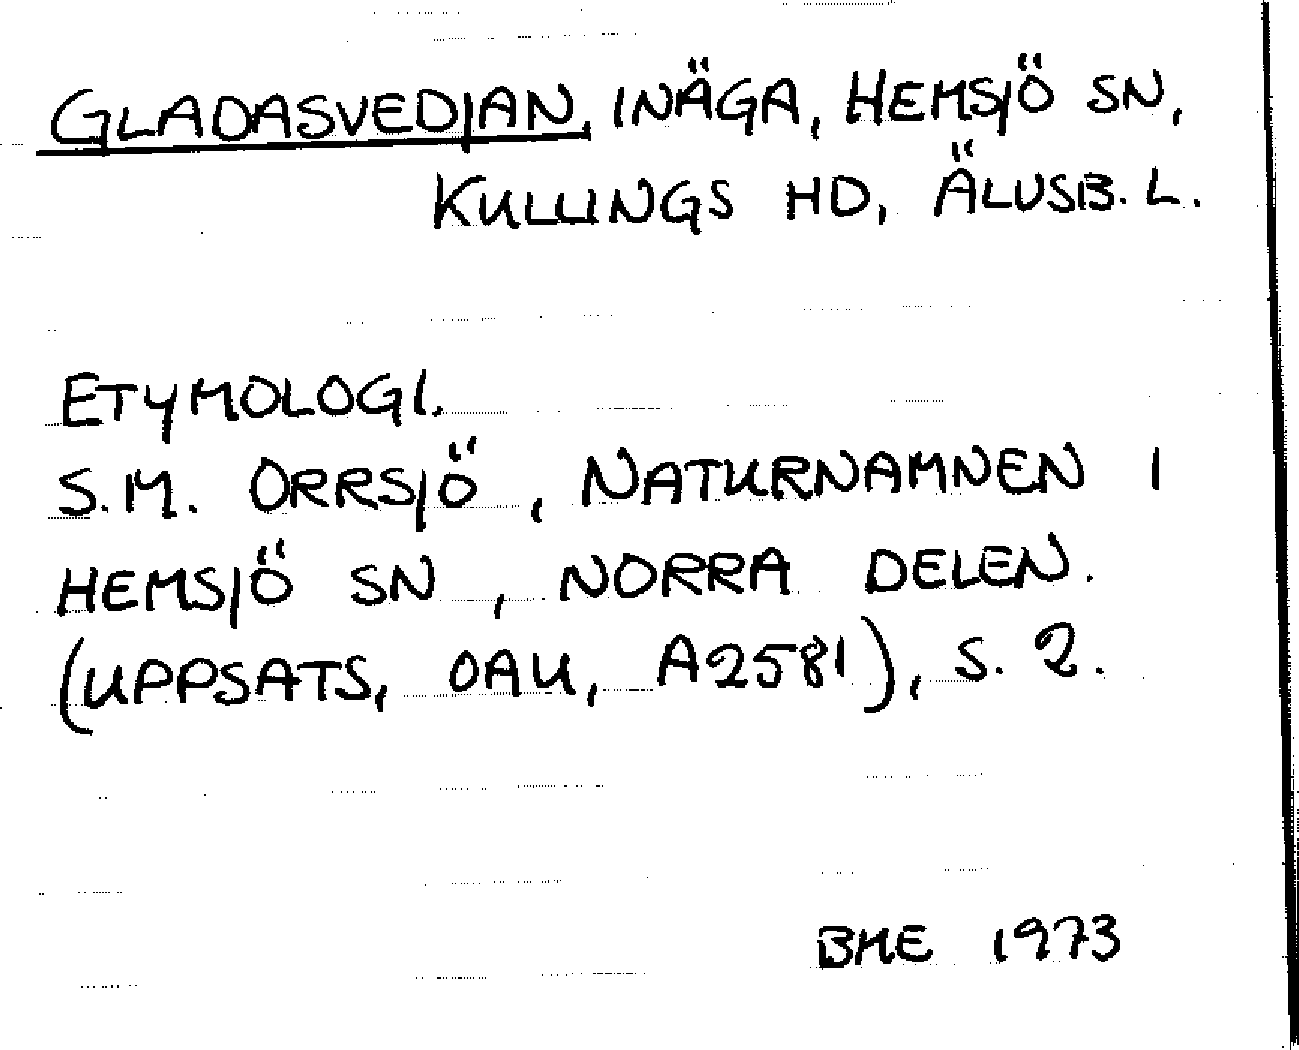 GLADASVEDJAN, INÄGA, HEMSJÖ SN,
KULLINGS HD, ÄLVSB. L.
ETYMOLOGI.
S.M. ORRSJÖ, NATURNAMNEN I
HEMSJÖ SN, NORRA DELEN.
(UPPSATS, OAU, A2581), S. 2.
BME 1973